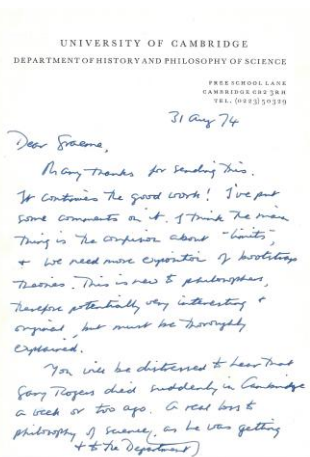 UNIVERSITY OF CAMBRIDGE
DEPARTMENT OF HISTORY AND PHILOSOPHY OF SCIENCE
FREE SCHOOL LANE
CAMBRIDGE CB2 3RH
TEL. (0223) 50329
31 Aug 74
Dear Graeme,
Many thanks for sending this.
It continues the good work! I've put
some comments on it. I think the main
thing is the confusion about "limits",
& we need more exposition of bootstrap
theories. This is new to philosophers,
therefore potentially very interesting &
original, but must be thoroughly
explained.
You will be distressed to hear that
Gary Rogers died suddenly in Cambridge
a week or two ago. A real loss to
philosophy of science, as he was getting
& to the Department)